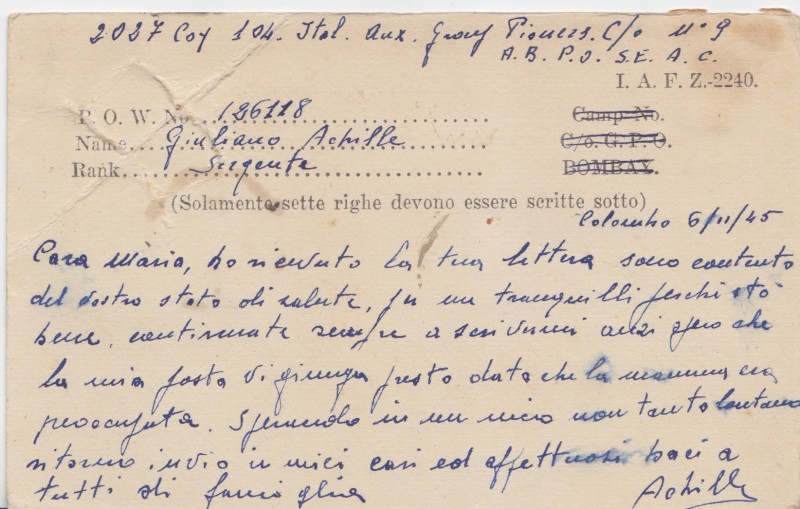 2027 Coy 104. Ital. Aux. Group Pioneers. C/o N° 9
A. B. P. O. S. E. A. C.
I. A. F. Z.-2240.
P. O. W. No. 126118
Camp No.
Name Giuliano Achille
C/o. G. P. O.
Rank Sergente
BOMBAY.
(Solamente sette righe devono essere scritte sotto)
Colombo 6/11/45
Cara Maria, ho ricevuto la tua lettera sono contento
del vostro stato di salute, su me tranquilli perchè stò
bene, continuate sempre a scrivermi anzi spero che
la mia posta vi giunga presto data che la mamma era
preoccupata. Sperando in un mio non tanto lontano
ritorno invio i miei cari ed affettuosi baci a
tutti di famiglia Achille